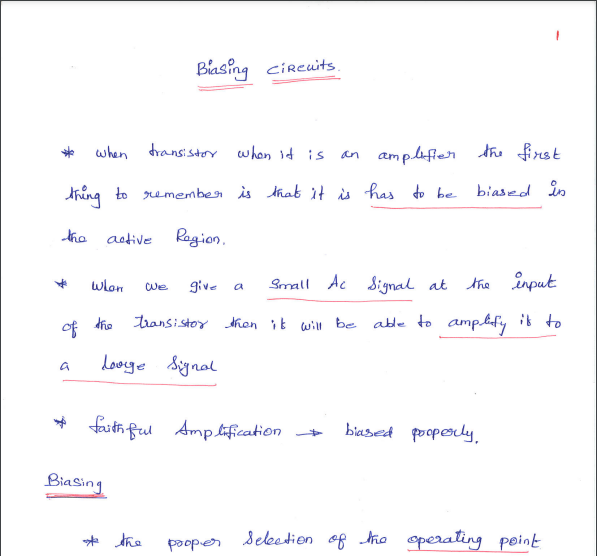 1
Biasing circuits.
* when transistor when it is an amplifier the first
thing to remember is that it is has to be biased in
the active Region.
* when we give a small Ac signal at the input
of the transistor then it will be able to amplify it to
a large signal
* faithful Amplification → biased properly.
Biasing
* the proper selection of the operating point